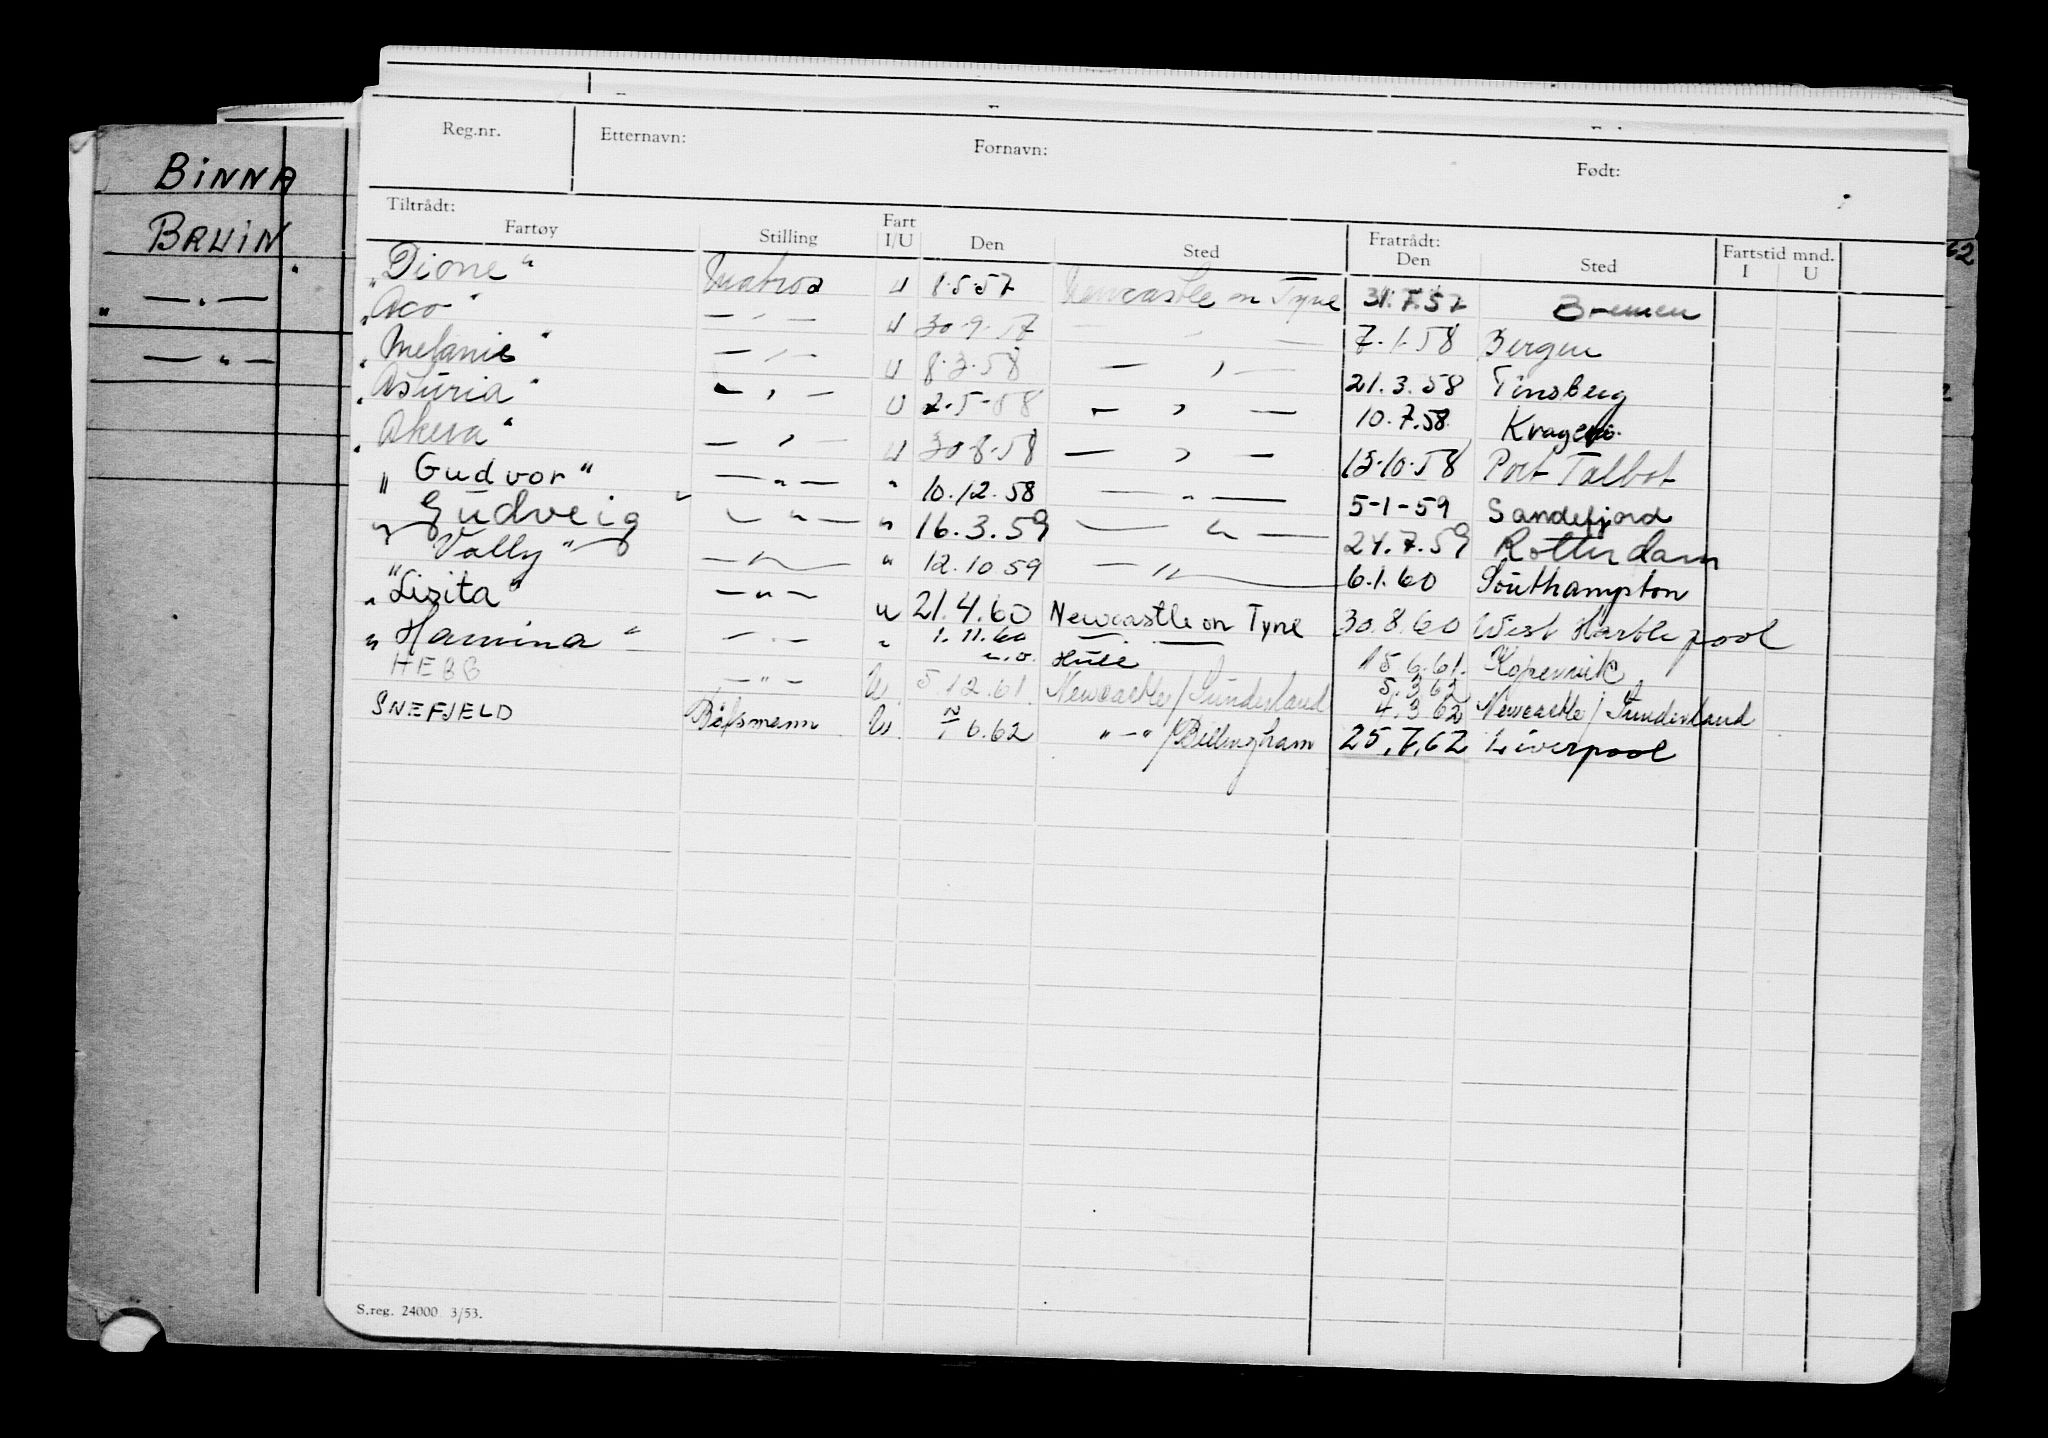 BINNA
BRUIN
" — " —
— " —
Reg.nr. Etternavn: Fornavn: Født:
Tiltrådt: Fartøy Stilling Fart I/U Den Sted Fratrådt: Den Sted Fartstid mnd. I U
"Dione" Matros U 1.5.57 Newcastle on Tyne 31.7.57 Bremen
"Aco" — " — U 30.9.57 — " — 7.1.58 Bergen
"Melanie" — " — U 8.3.58 — " — 21.3.58 Tønsberg
"Asturia" — " — U 2.5.58 — " — 10.7.58 Kragerø
"Akera" — " — U 30.8.58 — " — 15.10.58 Port Talbot
"Gudvor" — " — " 10.12.58 — " — 5-1-59 Sandefjord
"Gudveig" — " — " 16.3.59 — " — 24.7.59 Rotterdam
"Vally" — " — " 12.10.59 — " — 6.1.60 Southampton
"Lisita" — " — u 21.4.60 Newcastle on Tyne 30.8.60 West Hartlepool
"Hamina" — " — " 1.11.60 Hull 15.6.61. Kopervik
HEBB — " — U 5.12.61 Newcastle/Sunderland 4.3.62 Newcastle/Sunderland
5.3.62
SNEFJELD Båtsmann U 6.62 " — " /Billingham 25.7.62 Liverpool
S.reg. 24000 3/53.
62